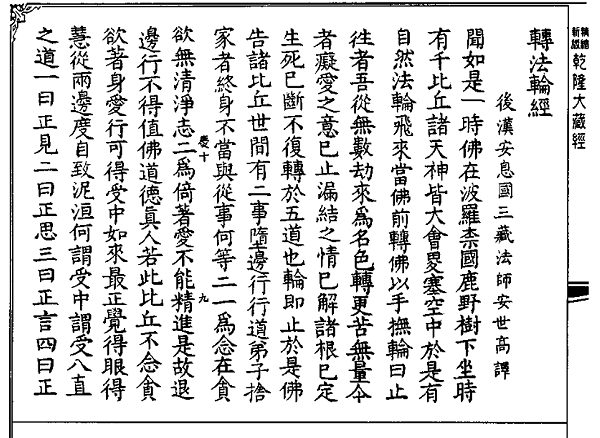 乾隆大藏經
轉法輪經
後漢安息國三藏法師安世高譯
聞如是一時佛在波羅柰國鹿野樹下坐時
有千比丘諸天神皆大會畟塞空中於是有
自然法輪飛來當佛前轉佛以手撫輪曰止
徃者吾從無數劫來爲名色轉更苦無量今
者癡愛之意已止漏結之情已解諸根已定
生死已斷不復轉於五道也輪即止於是佛
告諸比丘世間有二事墮邊行行道弟子捨
家者終身不當與從事何等二一爲念在貪
九
欲無清淨志二爲倚著愛不能精進是故退
邊行不得值佛道德真人若此比丘不念貪
欲著身愛行可得受中如來最正覺得眼得
慧從兩邊度自致泥洹何謂受中謂受八直
之道一曰正見二曰正思三曰正言四曰正